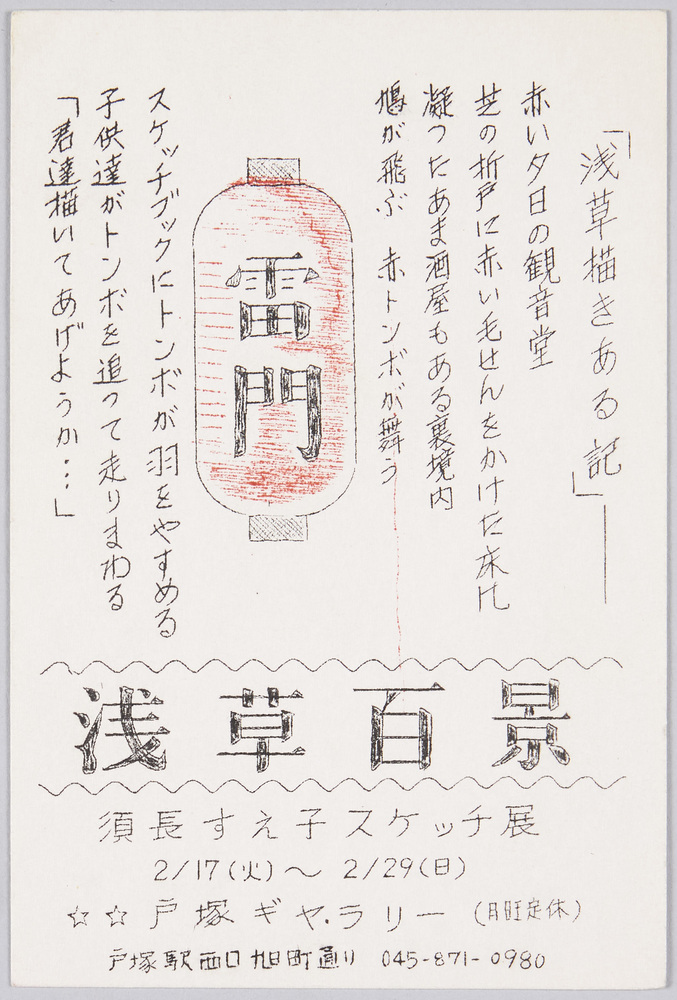 「浅草描きある記」――
赤い夕日の観音堂
芝の折戸に赤い毛せんをかけた床几
凝ったあま酒屋もある裏境内
鳩が飛ぶ 赤トンボが舞う
雷門
スケッチブックにトンボが羽をやすめる
子供達がトンボを追って走りまわる
「君達描いてあげようか…」
浅草百景
須長すえ子スケッチ展
2/17(火)～2/29(日)
☆☆戸塚ギャラリー(月旺定休)
戸塚駅西口旭町通り 045-871-0980